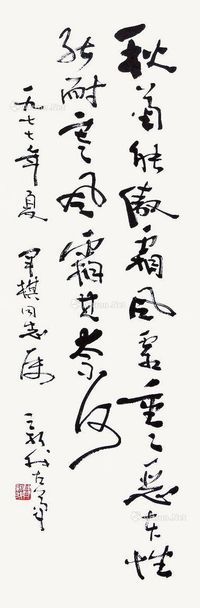 秋菊能傲霜风霜重々恶本性
能耐寒风霜其奈何
一九七七年夏 同志属